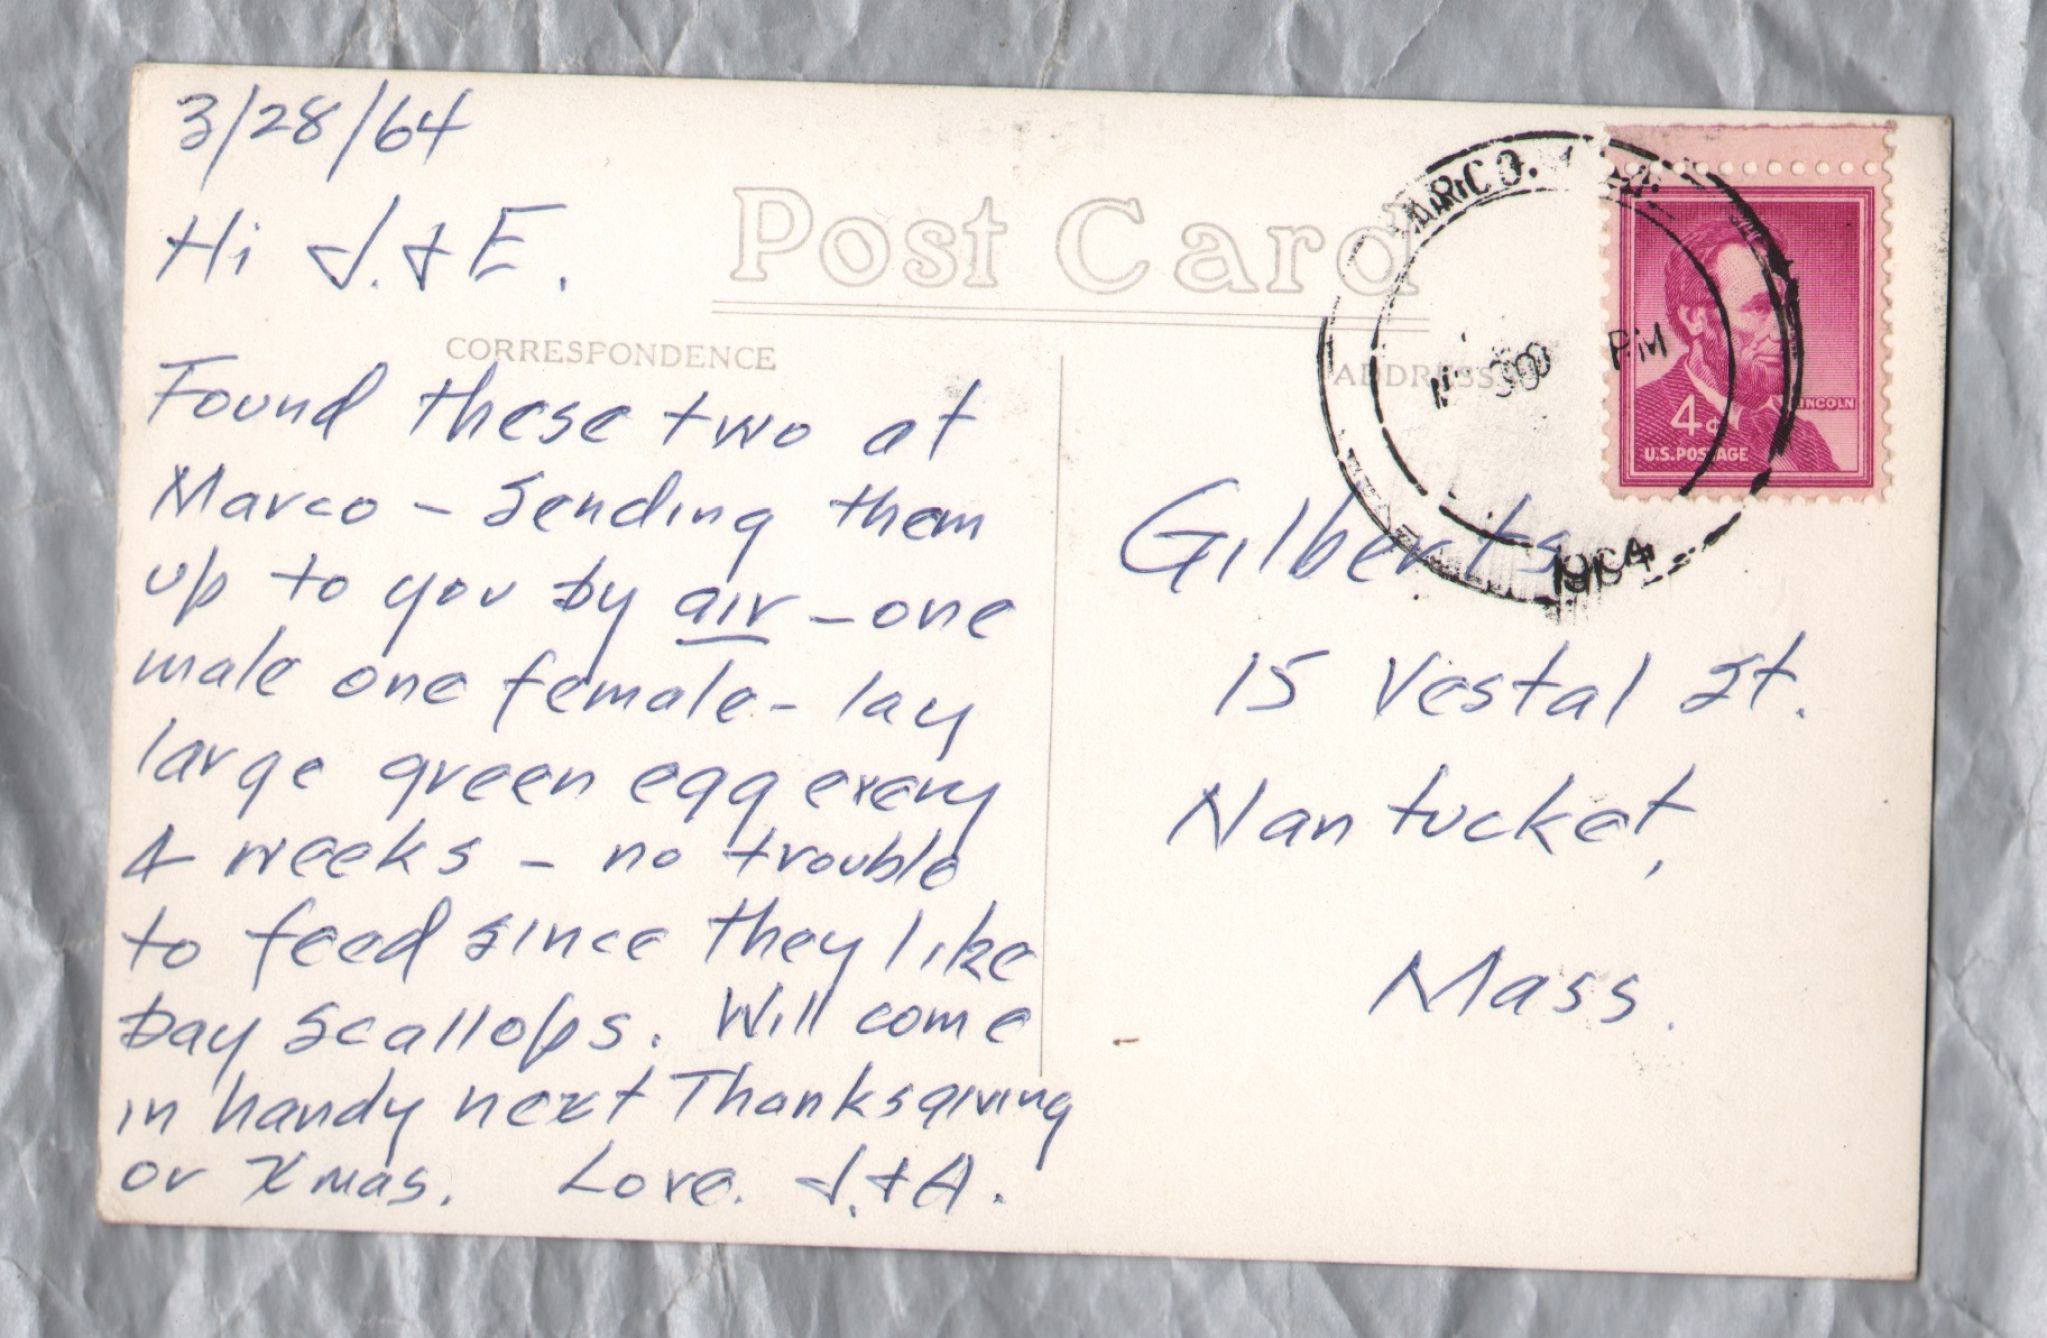 3/28/64
Hi J. + E.
Post Card
CORRESPONDENCE
Found these two at
Marco – Sending them
up to you by air – one
male one female – lay
large green egg every
4 weeks – no trouble
to feed since they like
Bay Scallops. Will come
in handy next Thanksgiving
or Xmas. Love. J. + A.
ADDRESS
PM
1964
LINCOLN
4¢
U.S. POSTAGE
Gilberts
15 Vestal St.
Nantucket,
Mass.